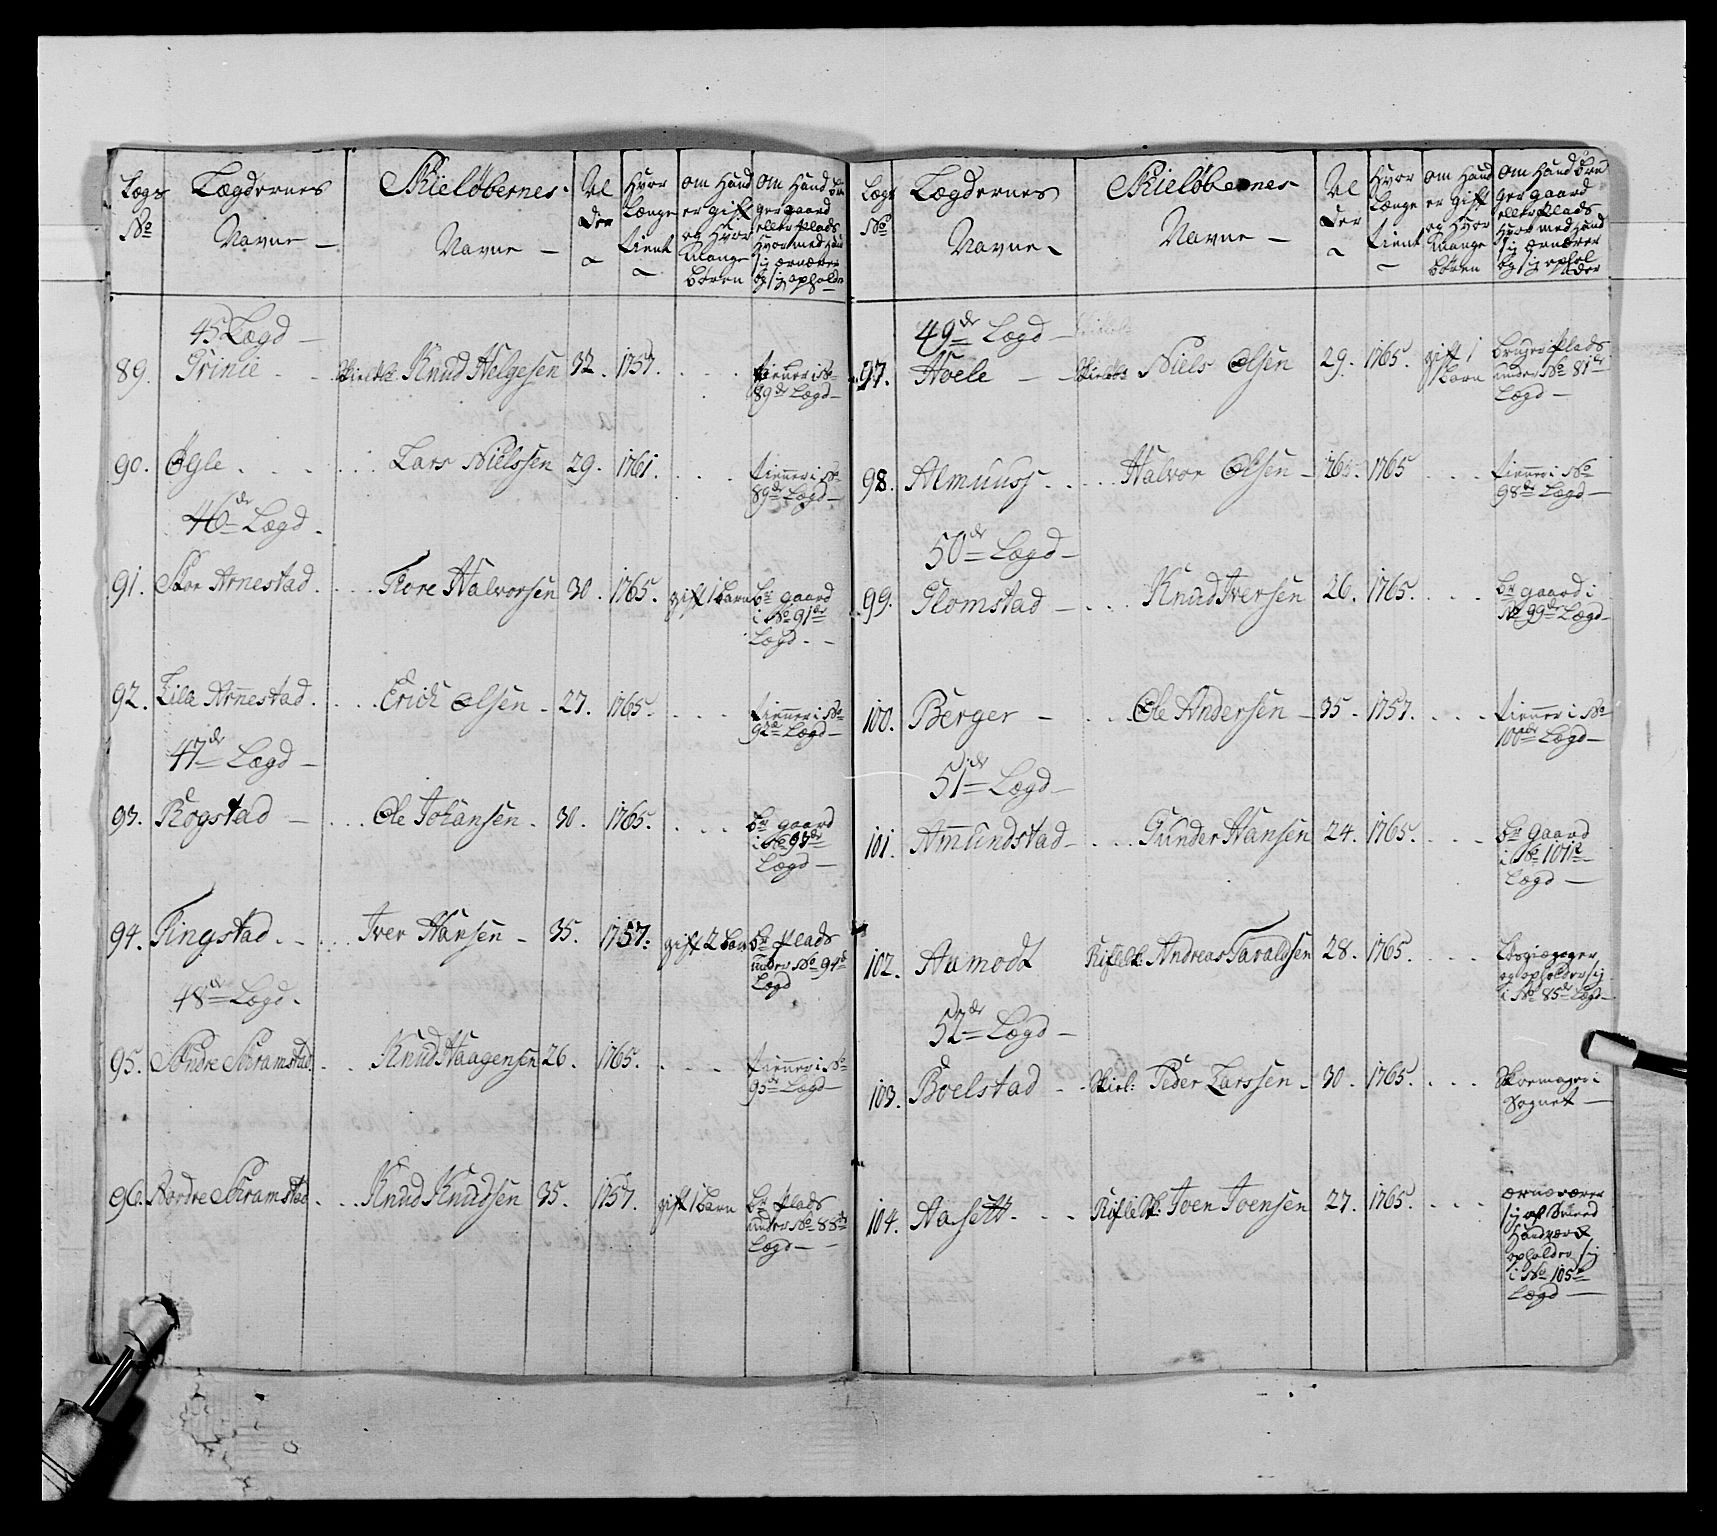 Lægs No | Lægdernes Navne | Skieløbernes Navne | Alder | Hvor Længe tient | om Hand er gift og hvor Mange börn | om Hand bruger gaard eller Plads Hvor med Hand sig ærnærer og sig opholder
45 Lægd
89. Grinie Skieløb: Knud Helgesen 32. 1757. tiener i No 89de Lægd
90. Ógle Lars Nielssen 29. 1761. tienner i No 89de Lægd
46de Lægd
91. Stor Arnestad Tore Halvorsen 30. 1765. gift 1 barn br gaard i No 91de Lægd
92. Lille Arnestad Erich Olsen 27. 1765. tienner i No 92de Lægd
47de Lægd
93. Rogstad Ole Johansen 30. 1765. br gaard i No 93de Lægd
94. Ringstad Iver Hansen 35. 1757. gift 2 barn br Plads under No 94de Lægd
48de Lægd
95. Søndre Skramstad Knud Haagensen 26. 1765. tienner i No 95de Lægd
96. Nordre Skramstad Knud Knudsen 35. 1757. gift 1 barn br Plads under No 85de Lægd
Lægs No | Lægdernes Navne | Skieløbernes Navne | Alder | Hvor Længe tient | om Hand er gift og Hvor Mange börn | om Hand bruger gaard eller Plads Hvor med Hand sig ærnærer og sig opholder
49de Lægd
97. Hoele Skieløb: Niels Olsen 29. 1765. gift 1 barn bruger Plads under No 81de Lægd
98. Almuuss Halvor Olsen 26. 1765 tienner i No 98de Lægd
50de Lægd
99. Glomstad Knud Iversen 26. 1765. br gaard i No 99de Lægd
100. Berger Ole Andersen 35. 1757. tienner i No 100de Lægd
51de Lægd
101. Amundstad Gunder Hansen 24. 1765. br gaard i No 101de Lægd
102. Aamodt Andreas Taraldsen 28. 1765. og opholder sig i No 85de Lægd
52de Lægd
103. Boelstad Skiel: Peder Larssen 30. 1765. Skoemager i Sognet
104. Aasett Joen Joensen 27. 1765. ærnærer sig af Smeed Handværk opholder sig i No 105de Lægd